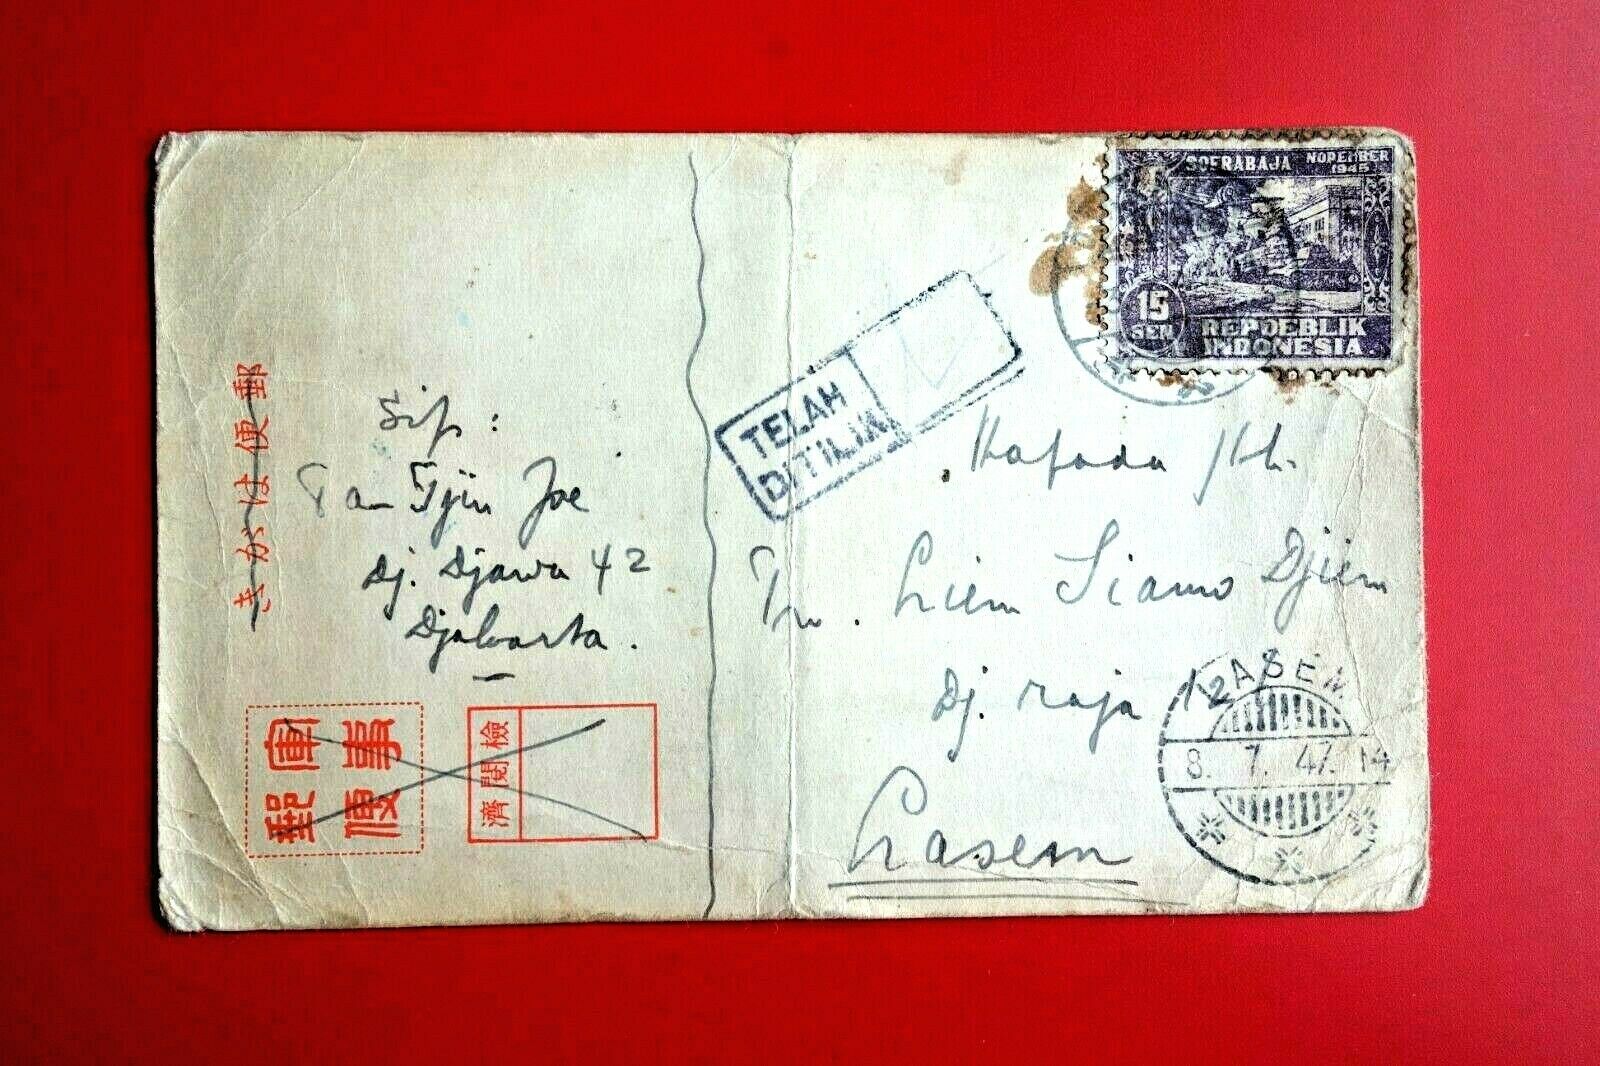 郵便はがき
軍事
郵便
検閲済
Sip:
Tan Tjin Joe
Dj. Djawa 42
Djakarta.
TELAH
DITILIK
SOERABAJA NOPEMBER
1945
15
SEN
REPOEBLIK
INDONESIA
Kapada Jth.
Tn. Liem Siamo Djiem
Dj. raja 12
Lasem
LASEM
8. 7. 47. 14